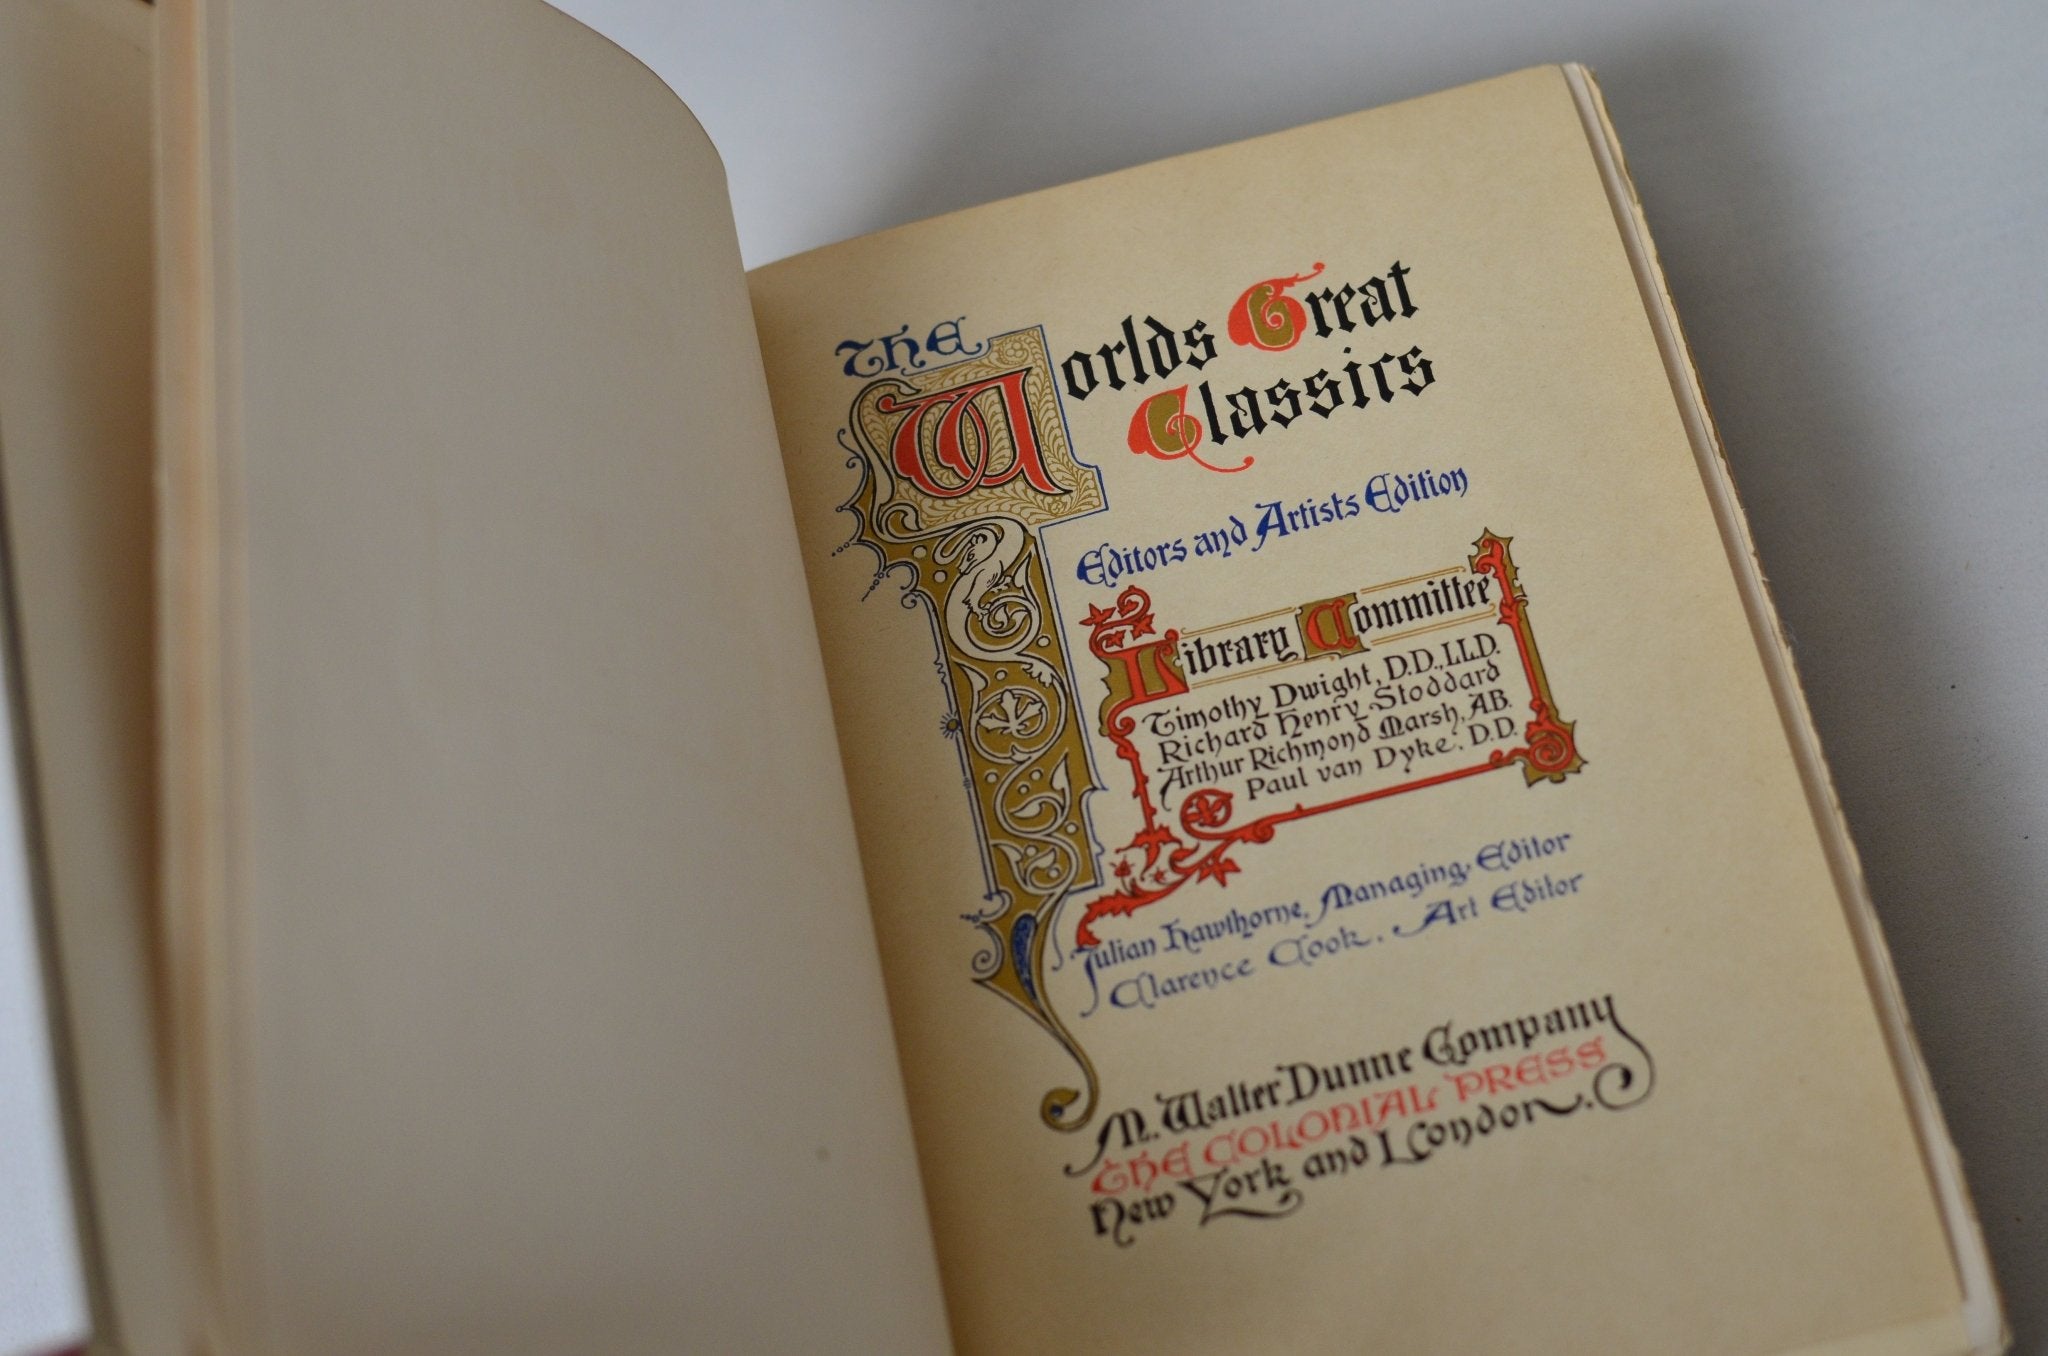 The Worlds Great
Classics
Editors and Artists Edition
Library Committee
Timothy Dwight, D.D., LL.D.
Richard Henry Stoddard
Arthur Richmond Marsh, A.B.
Paul van Dyke, D.D.
Julian Hawthorne, Managing Editor
Clarence Cook, Art Editor
M. Walter Dunne Company
THE COLONIAL PRESS
New York and London